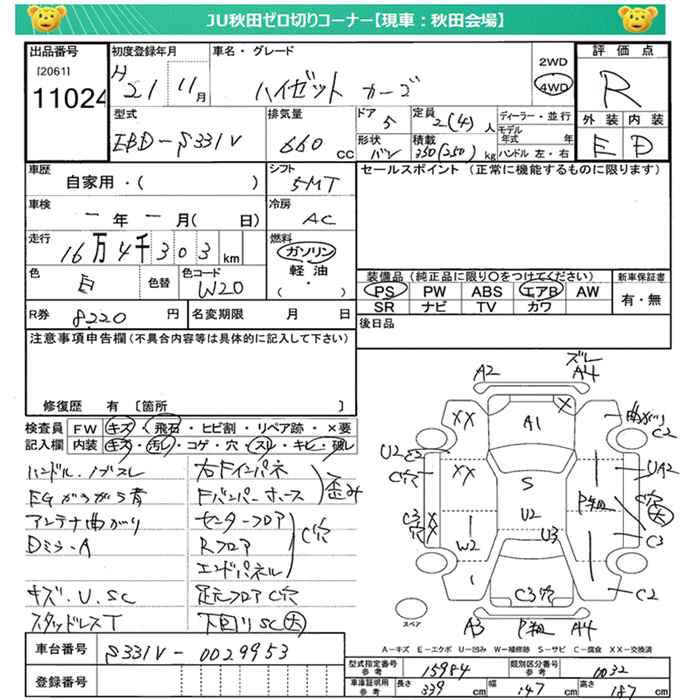 JU秋田ゼロ切りコーナー【現車：秋田会場】
出品番号
[2061]
11024
初度登録年月
H 21 11月
車名・グレード
ハイゼット カーゴ
2WD
4WD
評価点
R
型式
EBD-S331V
排気量
660 cc
ドア
5
形状
バン
定員
2(4)人
積載
350(250)kg
ディーラー・並行
モデル年式 年
ハンドル 左・右
外装 内装
E D
車歴
自家用・( )
シフト
5MT
セールスポイント（正常に機能するものに限ります）
車検
ー年ー月( 日)
冷房
AC
走行
16万4千303km
燃料
ガソリン
軽油
・( )
色
白
色替
色コード
W20
装備品（純正品に限り○をつけてください）
PS PW ABS エアB AW
SR ナビ TV カワ
新車保証書
有・無
R券 8,220 円
名変期限 月 日
後日品
注意事項申告欄（不具合内容等は具体的に記入して下さい）
修復歴 有〔箇所 〕
検査員 FW キズ・飛石・ヒビ割・リペア跡・×要
記入欄 内装 キズ・汚レ・コゲ・穴・スレ・キレ・破レ
ハンドル、ノブスレ
EGガラガラ音
アンテナ曲がり
Dミラ-A
キズ、U、SC
スタッドレスT
右Fインパネ
Fバンパーホース
歪み
センターフロア
Rフロア
エンドパネル
C穴
足元フロアC穴
下回りSC大
A2
ズレ
A4
XX
A1
X
曲がり
C2
U2
C穴
XX
S
U2
UA2
P組
C穴
大
C3
穴
XX
W2
U3
C3
C3穴
C2
A3
P組
A4
スペア
A-キズ E-エクボ U-凹み W-補修跡 S-サビ C-腐食 XX-交換済
車台番号
S331V-0029953
登録番号
型式指定番号
参考
15984
類別区分番号
参考
0032
車庫証明用
参考
長さ 339 cm
幅 147 cm
高さ 187 cm